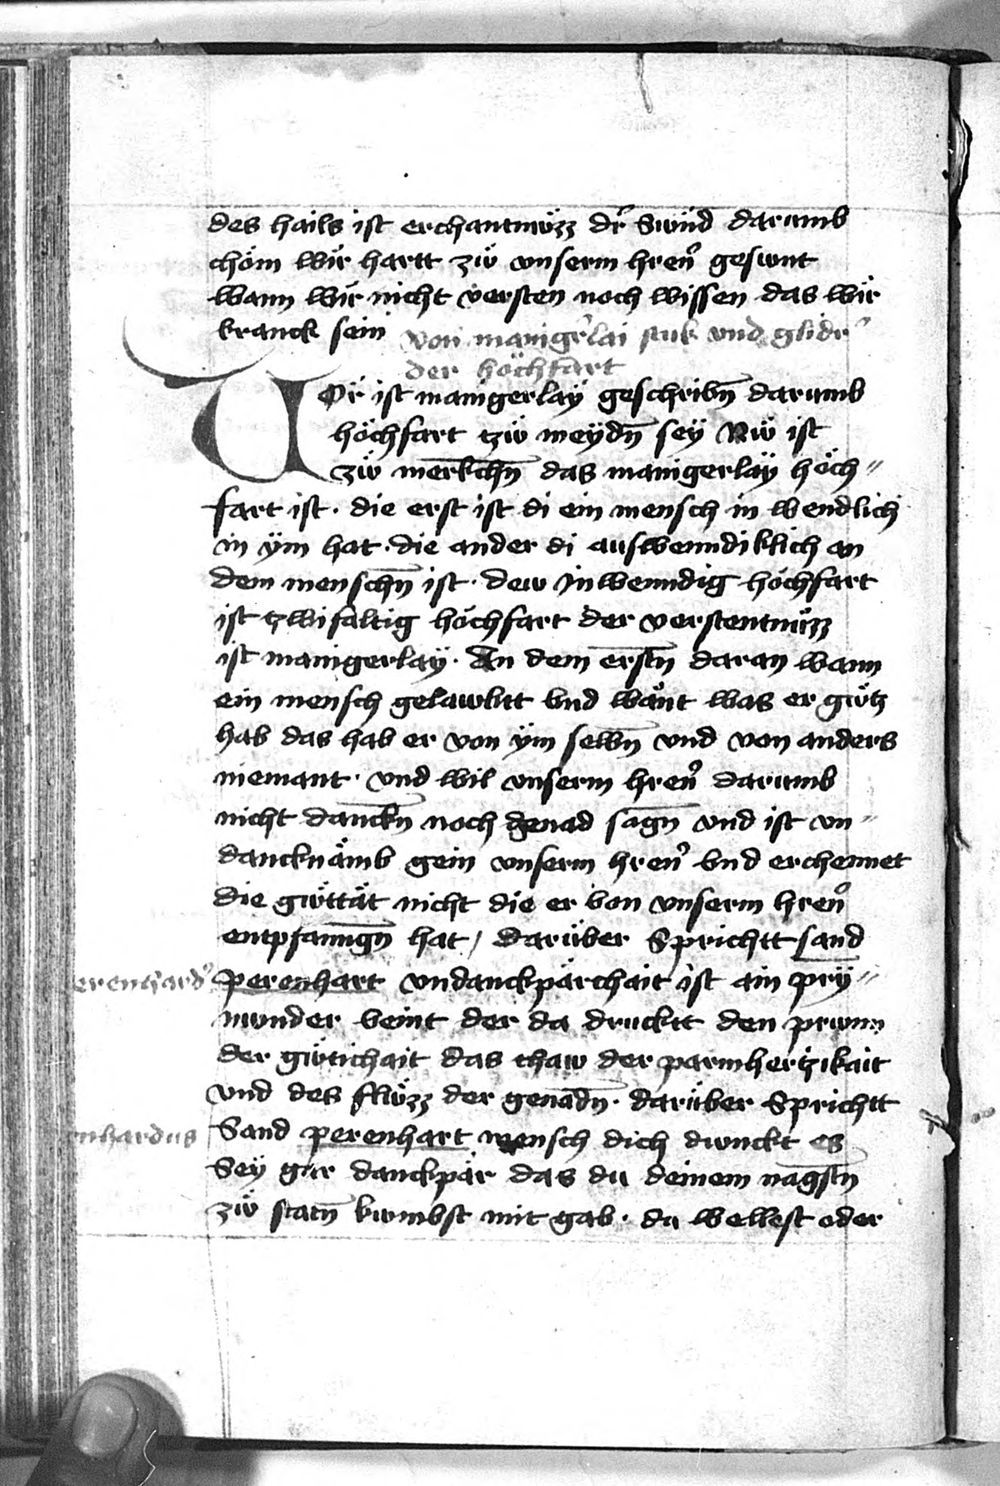 des hails ist erchantnüzz dr̄ Sünd darumb
chöm wir hartt zü vnserm hren̄ gesunt
wann wir nicht versten noch wissen das wir
kranck sein von manigerlai stuk vnd glidr̄
der höchfart
Vor ist manigerlaÿ geschribn̄ darumb
höchfart tzü meydn̄ seÿ Nü ist
zü merkchn̄ das manigerlaÿ höch//
fart ist · die erst ist di ein mensch in wendlich
in ÿm hat · die ander di auswenndiklich an
dem menschn̄ ist · dew Inwenndig höchfart
ist tzwifaltig höchfart der verstentnüzz
ist manigerlaÿ · An dem erstn̄ daran wann
ein mensch gelawbtt vnd wänt was er gütz
hab das hab er von ÿm selbn̄ vnd von anders
niemant · vnd wil vnserm hren̄ darumb
nicht danckn̄ noch genad sagn̄ vnd ist vn//
dancknämb gein vnserm hren̄ vnd erchennet
die güttät nicht die er von vnserm hren̄
entpfanngn̄ hat / darüber Sprichtt sand
erenhard9 perenhart vndanckpärchait ist ain prÿ//
nunder veint der da drucktt den prunn
der gütichait das thaw der parmhertzikait
vnd des flüzz der genadn̄ · darüber Sprichtt
nhardus Sand perenhart mensch dich dunckt es
Seÿ gar danckpär das du deinem nagstn̄
zü statn̄ kumbst mit gab · du wellest oder